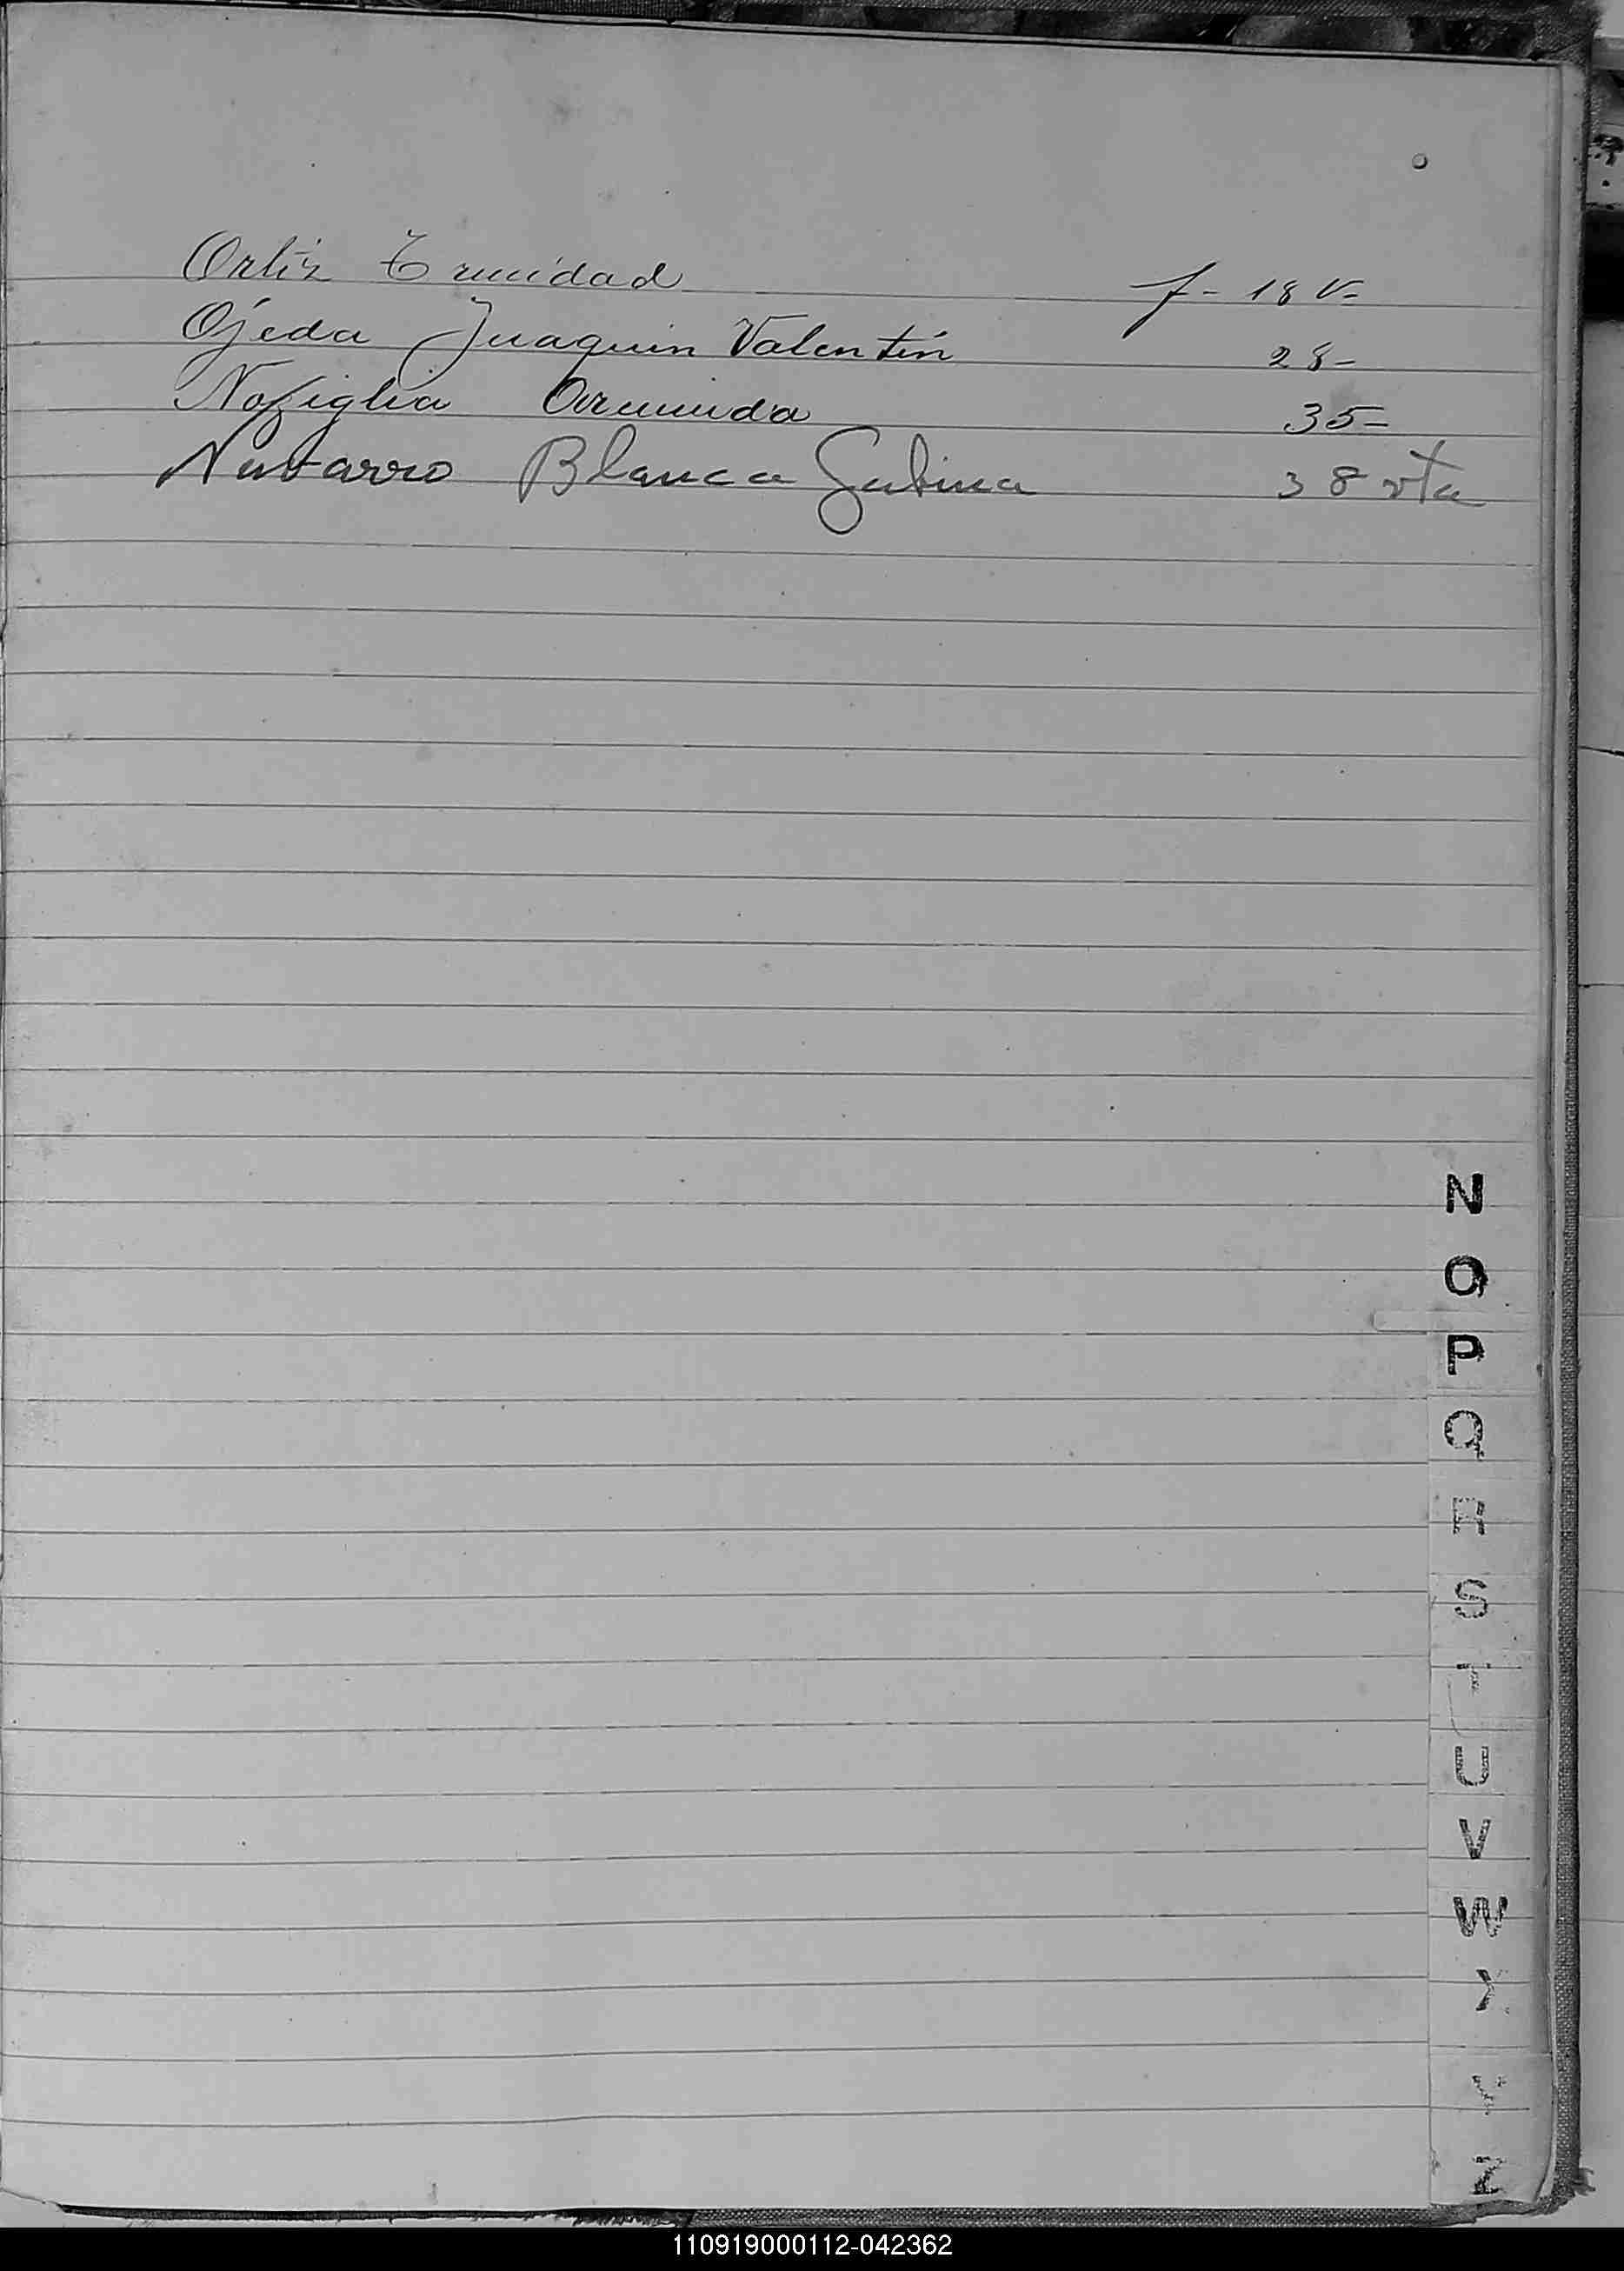 Ortiz Trinidad f- 18 v-
Ojeda Juaquin Valentin 28-
Nofiglia Armida 35-
Navarro Blanca Sabina 38 vta
N
O
P
Q
R
S
T
U
V
W
X
Y
Z
110919000112-042362